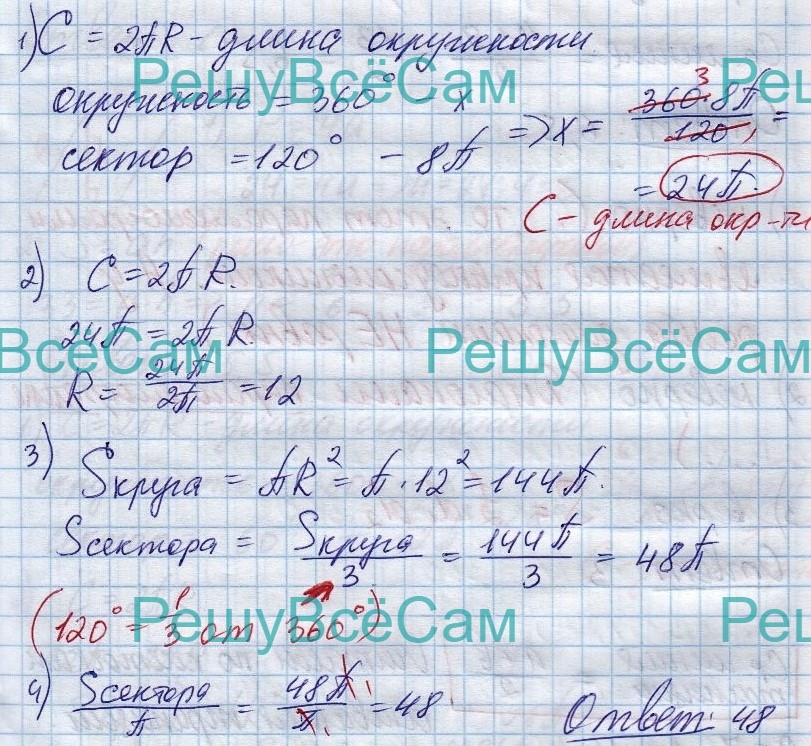 1) C = 2πR - длина окружности.
окружность = 360° - x
сектор = 120° - 8π
=> x = 360·8π / 120 =
3
1
= 24π.
C - длина окр-ти
2) C = 2πR.
24π = 2πR.
R = 24π / 2π = 12
3) Sкруга = πR² = π·12² = 144π.
Sсектора = Sкруга / 3 = 144π / 3 = 48π
(120° = 1/3 от 360°)
4) Sсектора / π = 48π / π = 48
1
1
Ответ: 48
РешуВсёСам
Реш
ВсёСам
РешуВсёСам
РешуВсёСам
Реш